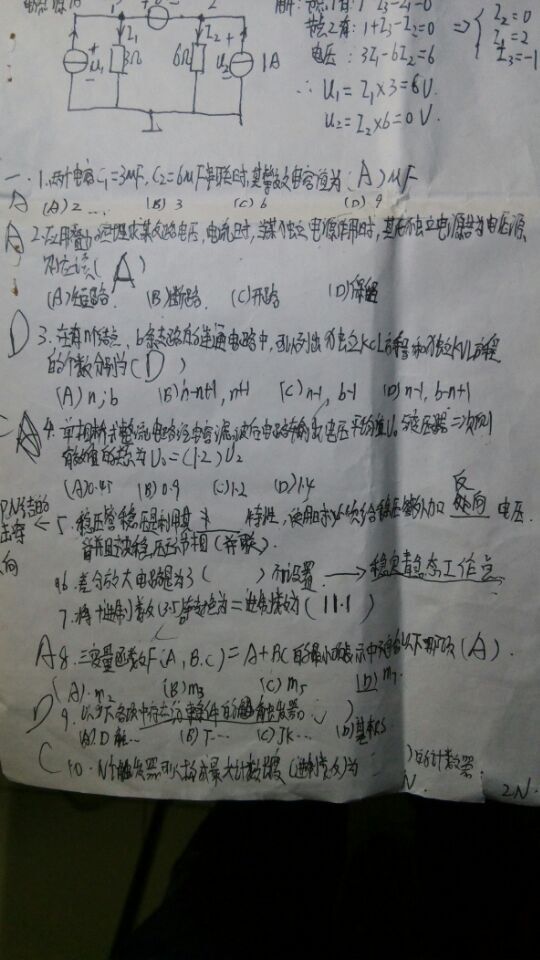 1 Z₂ 2
解:节点1有: 1-I₃-I₁=0
节点2有: 1+I₃-I₂=0
电压: 3I₁-6I₂=6
⇒ { I₂=0
I₁=2
I₃=-1
u₁ 3Ω 6Ω u₂ 1A
∴ U₁=I₁×3=6V.
U₂=I₂×6=0V.
一.1.两个电容C₁=3μF,C₂=6μF串联时,其等效电容值为(A)μF
A (A)2 (B)3 (C)6 (D)9
A 2.应用叠加原理求某支路电压,电流时,当某个独立电源作用时,其他不独立电源若为电压源
则应该(A)
(A)短路. (B)断路. (C)开路 (D)保留
D 3.在有n个结点,b条支路的连通电路中,可以列出独立KCL方程和独立KVL方程
的个数分别为(D)
(A)n,b (B)b-n+1,n+1 (C)n-1,b-1 (D)n-1,b-n+1
A 4.单相桥式整流电路经电容滤波后电路中输出电压平均值U₀与变压器二次侧
有效值的关系为U₀=(1.2)U₂
(A)0.45 (B)0.9 (C)1.2 (D)1.4
PN结的
击穿 ← 5.稳压管稳压是利用其 特性,使用时必须给稳压管外加 反向 电压.
向 (并联).
6.差分放大电路是为了( )而设置 → 稳定静态工作点
7.将十进制数(3.5)转变为二进制数为(11.1)
A 8.三变量函数F(A,B,C)=A+BC的最小项表示中不含以下哪项(A).
(A).m₂ (B)m₃ (C)m₅ (D)m₇
D 9.以下各项中存在约束条件的触发器( )
(A)D (B)T (C)JK (D)基本RS
C 10.N个触发器可以构成最大计数长度(进制数)为( )的计数器.
N. 2N.